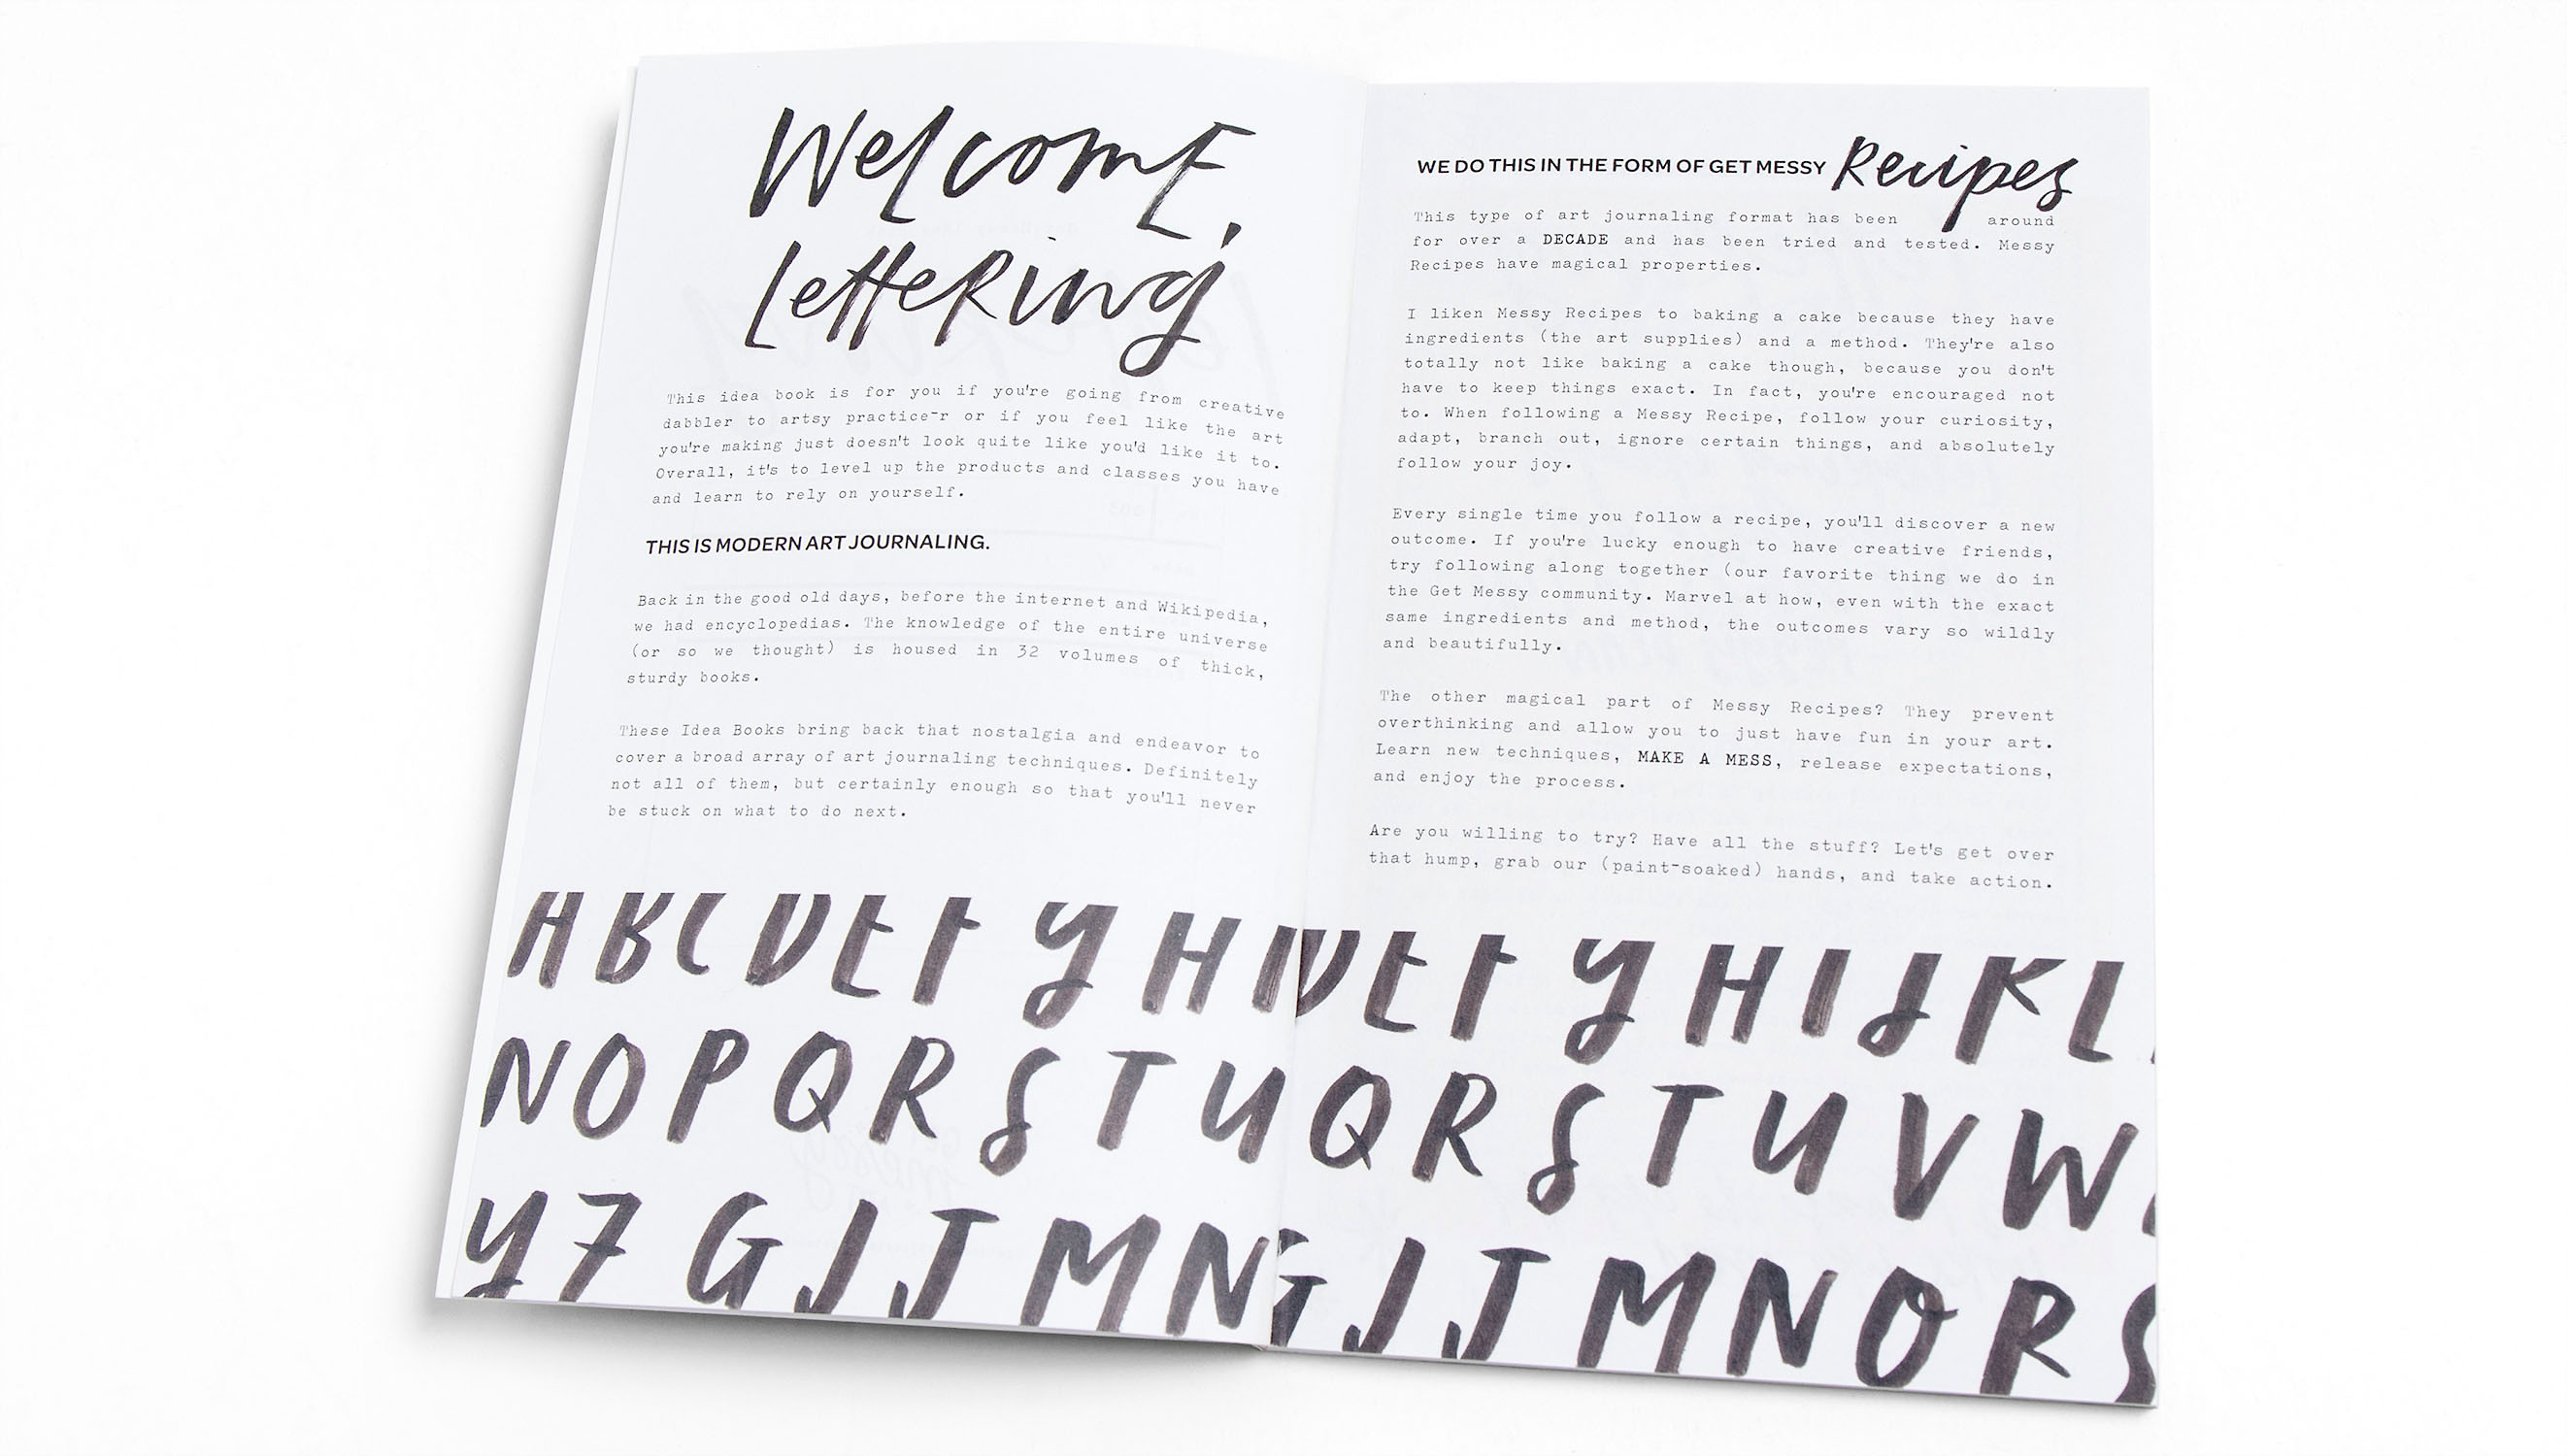 Welcome,
Lettering
This idea book is for you if you're going from creative
dabbler to artsy practice-r or if you feel like the art
you're making just doesn't look quite like you'd like it to.
Overall, it's to level up the products and classes you have
and learn to rely on yourself.
THIS IS MODERN ART JOURNALING.
Back in the good old days, before the internet and Wikipedia,
we had encyclopedias. The knowledge of the entire universe
(or so we thought) is housed in 32 volumes of thick,
sturdy books.
These Idea Books bring back that nostalgia and endeavor to
cover a broad array of art journaling techniques. Definitely
not all of them, but certainly enough so that you'll never
be stuck on what to do next.
A B C D E F G H I
N O P Q R S T U
Y Z G I J M N
WE DO THIS IN THE FORM OF GET MESSY Recipes
This type of art journaling format has been around
for over a DECADE and has been tried and tested. Messy
Recipes have magical properties.
I liken Messy Recipes to baking a cake because they have
ingredients (the art supplies) and a method. They're also
totally not like baking a cake though, because you don't
have to keep things exact. In fact, you're encouraged not
to. When following a Messy Recipe, follow your curiosity,
adapt, branch out, ignore certain things, and absolutely
follow your joy.
Every single time you follow a recipe, you'll discover a new
outcome. If you're lucky enough to have creative friends,
try following along together (our favorite thing we do in
the Get Messy community. Marvel at how, even with the exact
same ingredients and method, the outcomes vary so wildly
and beautifully.
The other magical part of Messy Recipes? They prevent
overthinking and allow you to just have fun in your art.
Learn new techniques, MAKE A MESS, release expectations,
and enjoy the process.
Are you willing to try? Have all the stuff? Let's get over
that hump, grab our (paint-soaked) hands, and take action.
D E F G H I J K L
Q R S T U V W
G I J M N O R S